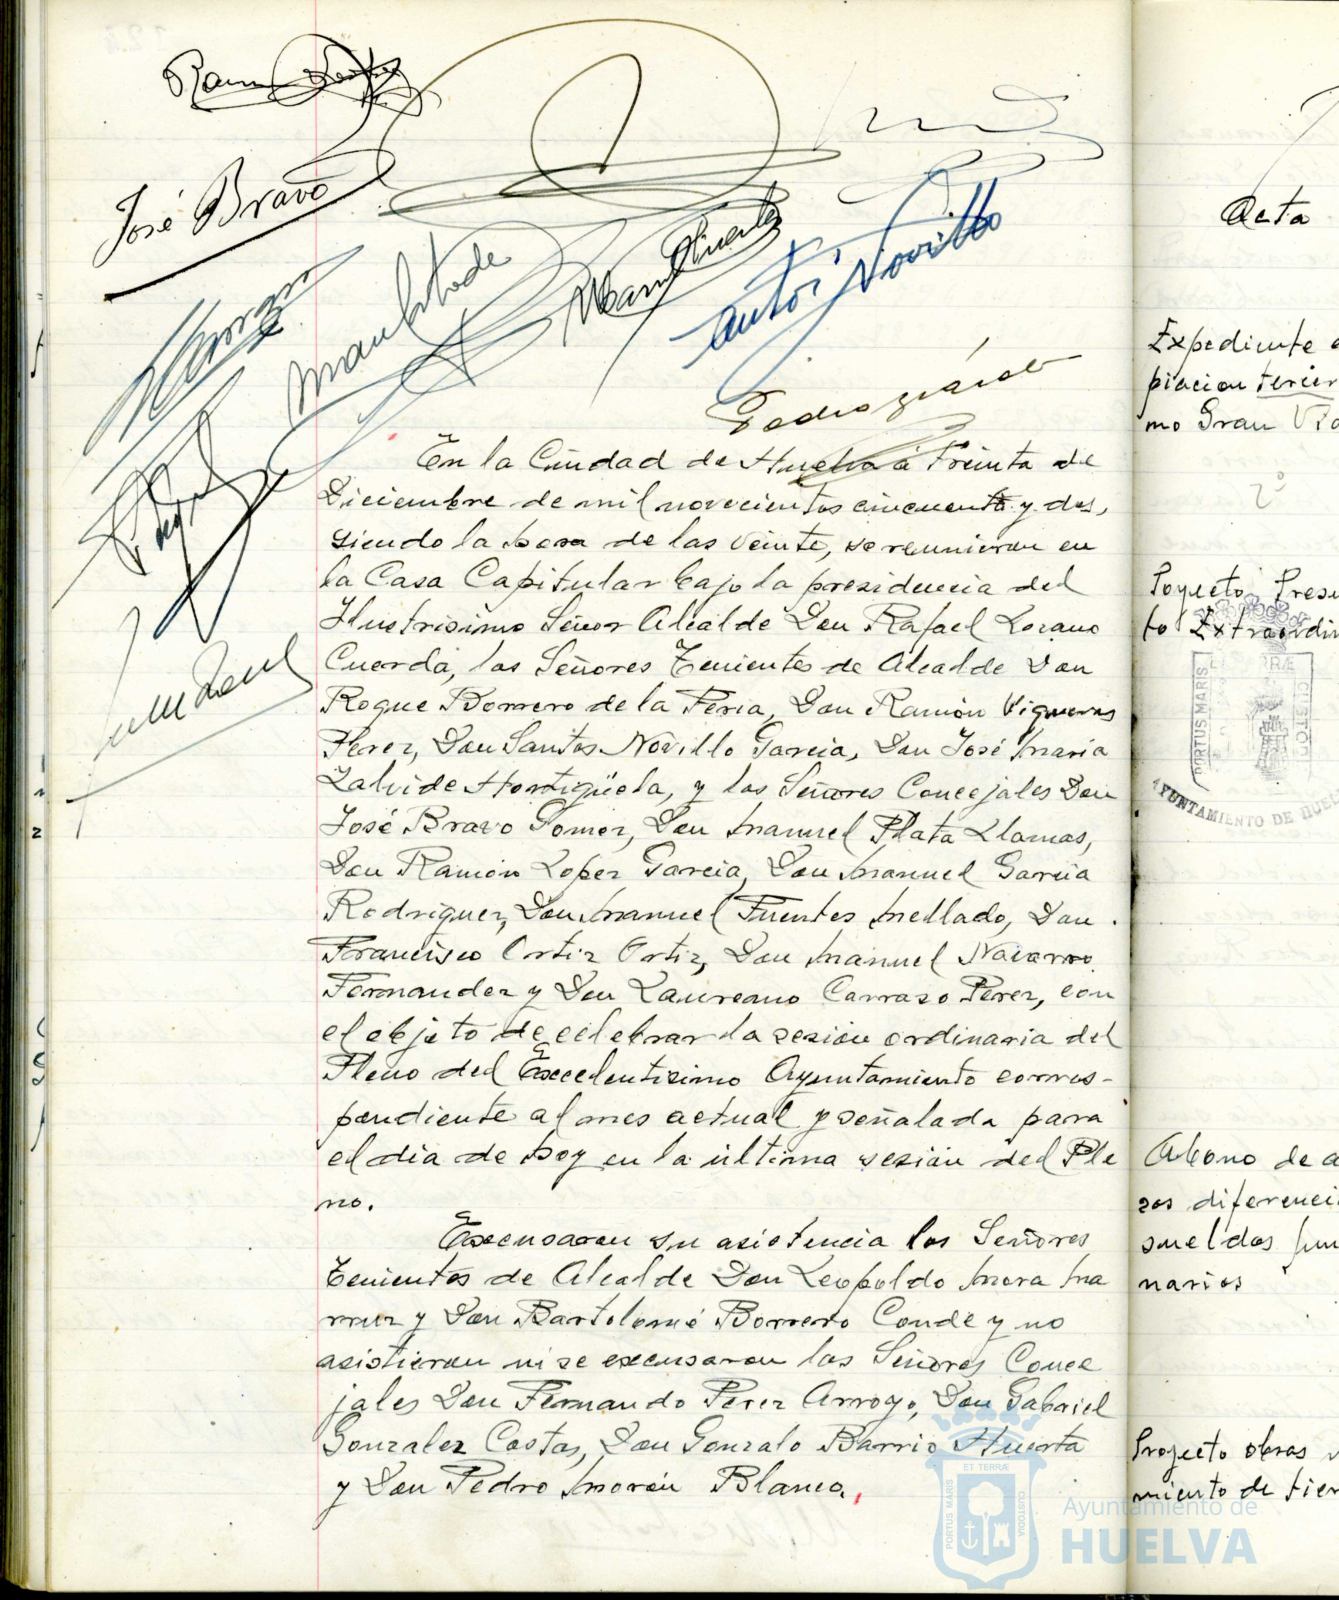 José Bravo
Pedro
En la Ciudad de Huelva a Treinta de
Diciembre de mil novecientos cincuenta y dos,
siendo la hora de las veinte, se reunieron en
la Casa Capitular bajo la presidencia del
Ilustrisimo Señor Alcalde Don Rafael Lozano
Cuerda, los Señores Tenientes de Alcalde Don
Roque Borrero de la Feria, Don Ramón Vigueras
Perez, Don Santos Novillo Garcia, Don José Maria
Zalvide Hortigüela, y los Señores Concejales Don
José Bravo Gomez, Don Manuel Plata Llamas,
Don Ramón Lopez Garcia, Don Manuel Garcia
Rodriguez, Don Manuel Fuentes Mellado, Don
Francisco Ortiz Ortiz, Don Manuel Navarro
Fernandez y Don Laureano Carraso Perez, con
el objeto de celebrar la sesión ordinaria del
Pleno del Excelentisimo Ayuntamiento corres-
pondiente al mes actual y señalada para
el dia de hoy en la última sesión del Ple
no.
Excusaron su asistencia los Señores
Tenientes de Alcalde Don Leopoldo Mora Ma
rmz y Don Bartolomé Borrero Conde y no
asistieron ni se excusaron los Señores Conce
jales Don Fernando Perez Arroyo, Don Gabriel
Gonzalez Costas, Don Gonzalo Barrio Huerta
y Don Pedro Morón Blanco.
Acta
Expediente
piacion tercer
mo Gran
2º
Poyecto Presu
to Extraordin
PORTUS MARIS
CUSTODIA
AYUNTAMIENTO DE HUEL
Abono de a
sos diferenci
sueldos fun
narios
Proyecto obras
miento de tier
PORTUS MARIS
ET TERRÆ
CUSTODIA
Ayuntamiento de
HUELVA